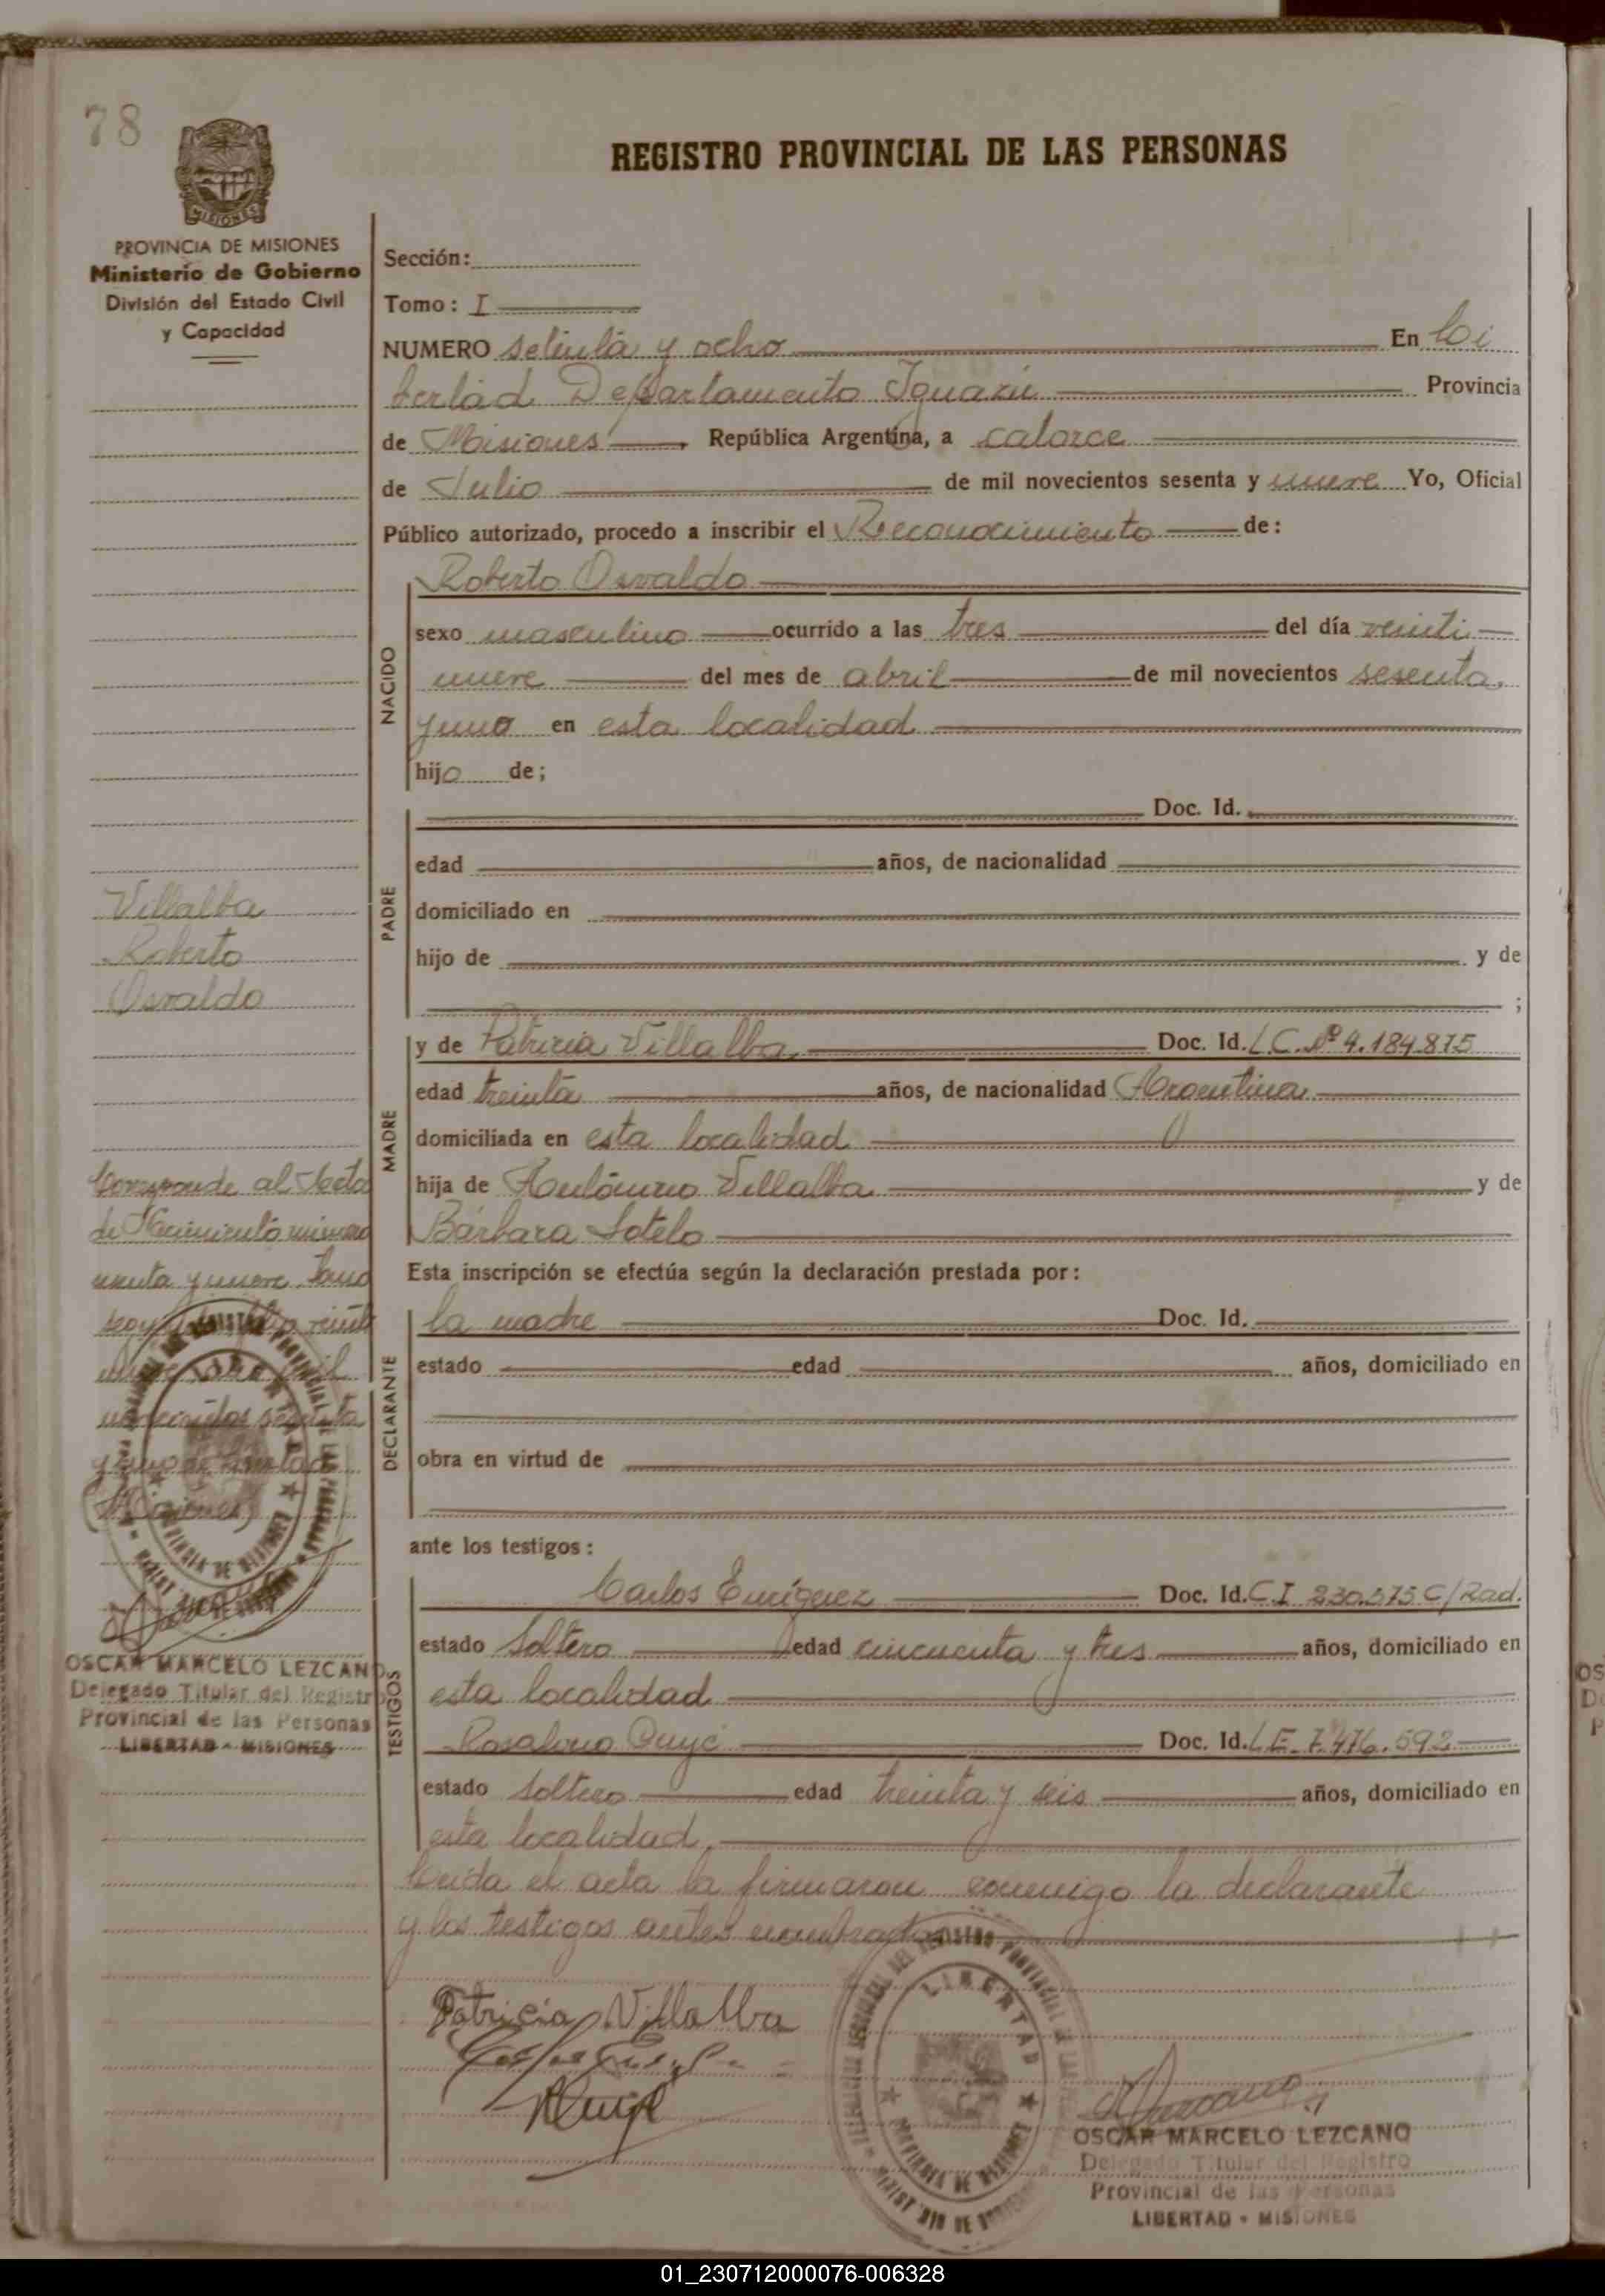 78
MISIONES
PROVINCIA DE MISIONES
Ministerio de Gobierno
División del Estado Civil
y Capacidad
REGISTRO PROVINCIAL DE LAS PERSONAS
Sección:
Tomo: I
NUMERO setenta y ocho En Li
bertad Departamento Iguazú Provincia
de Misiones República Argentina, a catorce
de Julio de mil novecientos sesenta y nueve Yo, Oficial
Público autorizado, procedo a inscribir el Reconocimiento de:
NACIDO
Roberto Osvaldo
sexo masculino ocurrido a las tres del día veinti
nueve del mes de abril de mil novecientos sesenta
y uno en esta localidad
hijo de;
PADRE
Doc. Id.
edad años, de nacionalidad
domiciliado en
hijo de y de
;
MADRE
y de Patricia Villalba Doc. Id. L.C. Nº 4.184.875
edad treinta años, de nacionalidad Argentina
domiciliada en esta localidad
hija de Antonino Villalba y de
Bárbara Sotelo
Esta inscripción se efectúa según la declaración prestada por:
DECLARANTE
la madre Doc. Id.
estado edad años, domiciliado en
obra en virtud de
ante los testigos:
TESTIGOS
Carlos Enríquez Doc. Id. C.I 230.575 C/Rad.
estado Soltero edad cincuenta y tres años, domiciliado en
esta localidad
Rosalino Doc. Id. L.E. 7.476.592
estado soltero edad treinta y seis años, domiciliado en
esta localidad.
Leida el acta la firmaron conmigo la declarante
y los testigos antes nombrados
Patricia Villalba
LIBERTAD
PROVINCIA DE MISIONES
OSCAR MARCELO LEZCANO
Delegado Titular del Registro
Provincial de las Personas
LIBERTAD - MISIONES
Villalba
Roberto
Osvaldo
Corresponde al Acta
de Nacimiento número
y nueve Tomo
novecientos sesenta
y uno de Libertad
(Misiones)
OSCAR MARCELO LEZCANO
Delegado Titular del Registro
Provincial de las Personas
LIBERTAD - MISIONES
01_230712000076-006328